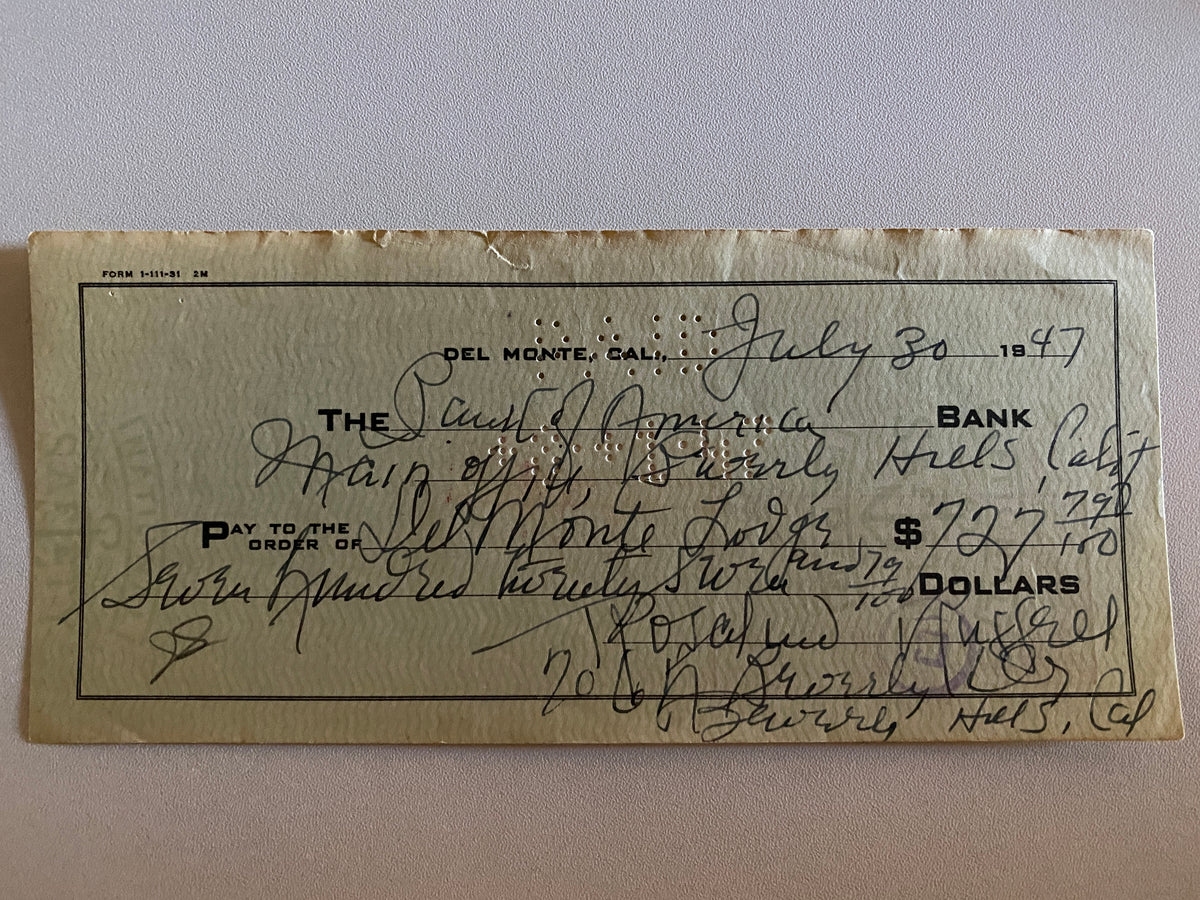 FORM 1-111-31 2M
DEL MONTE, CAL., July 30 1947
THE Bank of America BANK
Main office, Beverly Hills, Calif
PAY TO THE ORDER OF Del Monte Lodge $ 727 79/100
Seven hundred twenty seven and 79/100 DOLLARS
Rosalind Russell
706 N Beverly Dr
Beverly Hills, Cal